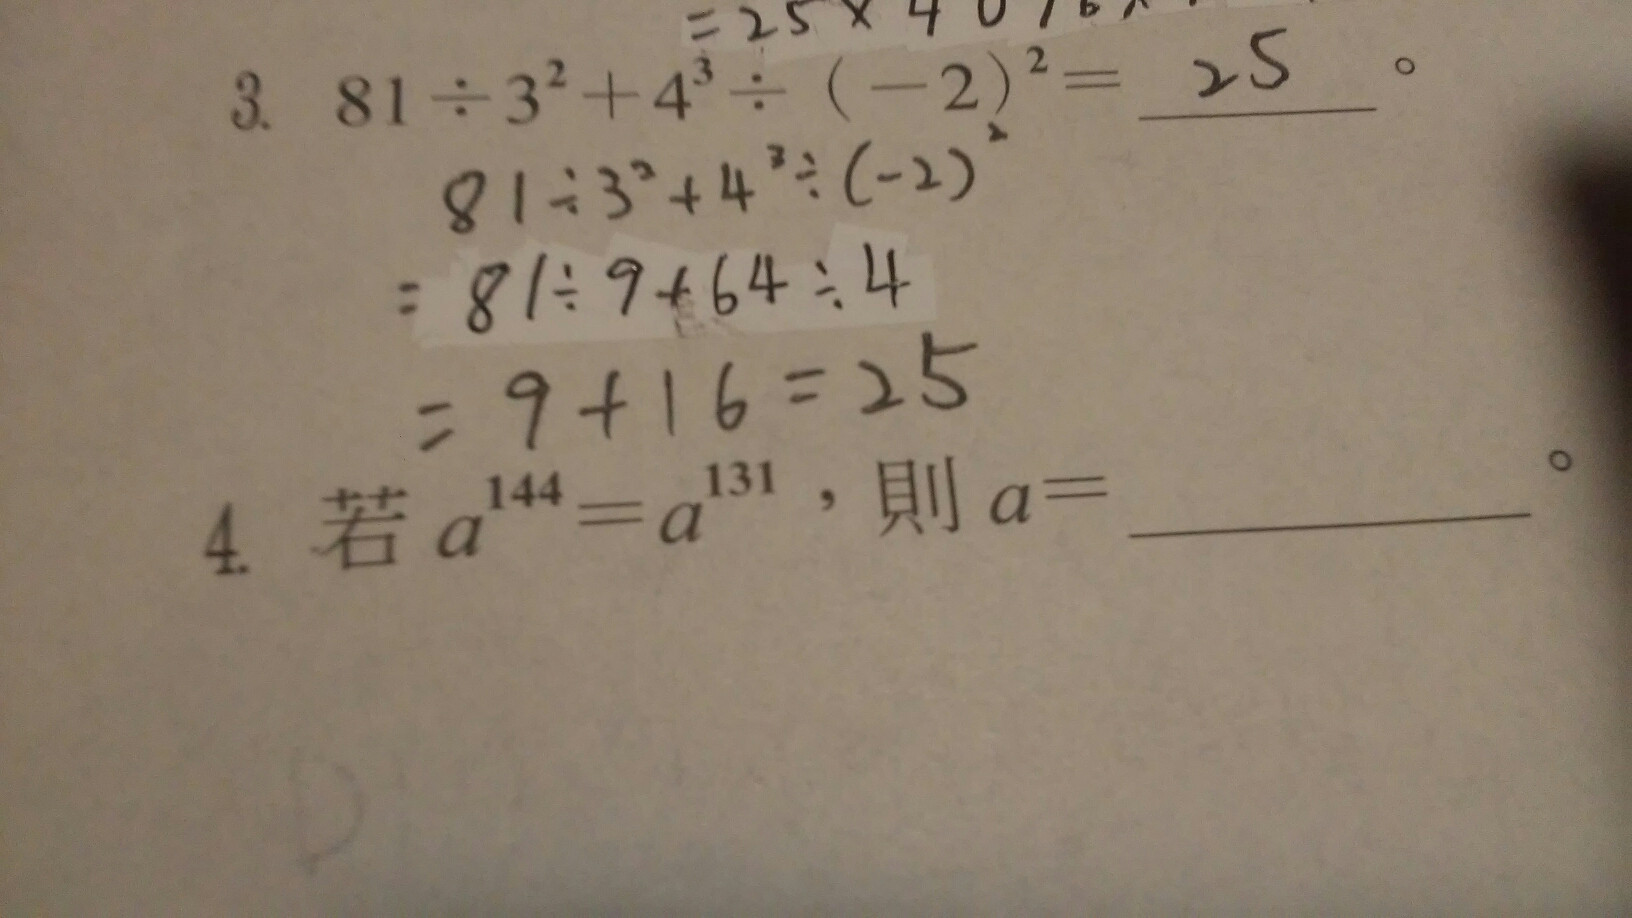 =25×4096×
3. 81÷3²+4³÷(-2)²= 25 。
81÷3²+4³÷(-2)²
= 81÷9+64÷4
= 9+16=25
4. 若 a¹⁴⁴=a¹³¹,則 a=________。